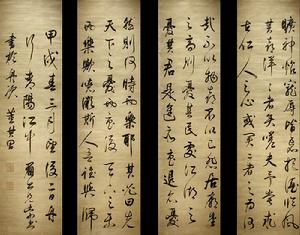 曠神怡把酒臨風
其喜洋洋者矣嗟夫予嘗求
古仁人之心或異二者之為何
哉不以物喜不以己悲居廟堂
之高則憂其民處江湖之
憂其君是進亦憂退亦憂
然則何時而樂耶其必曰先
天下之憂而憂後天下之樂
而樂歟噫微斯人吾誰與歸
甲戌春三月望後二日舟
行青陽江中
書於舟次 董其昌